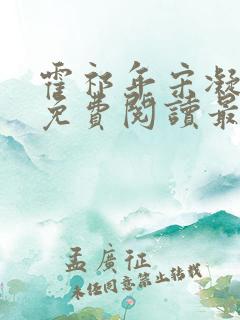 霍祁年宋凝
免費閱讀最
孟廣征
未经同意禁止转载